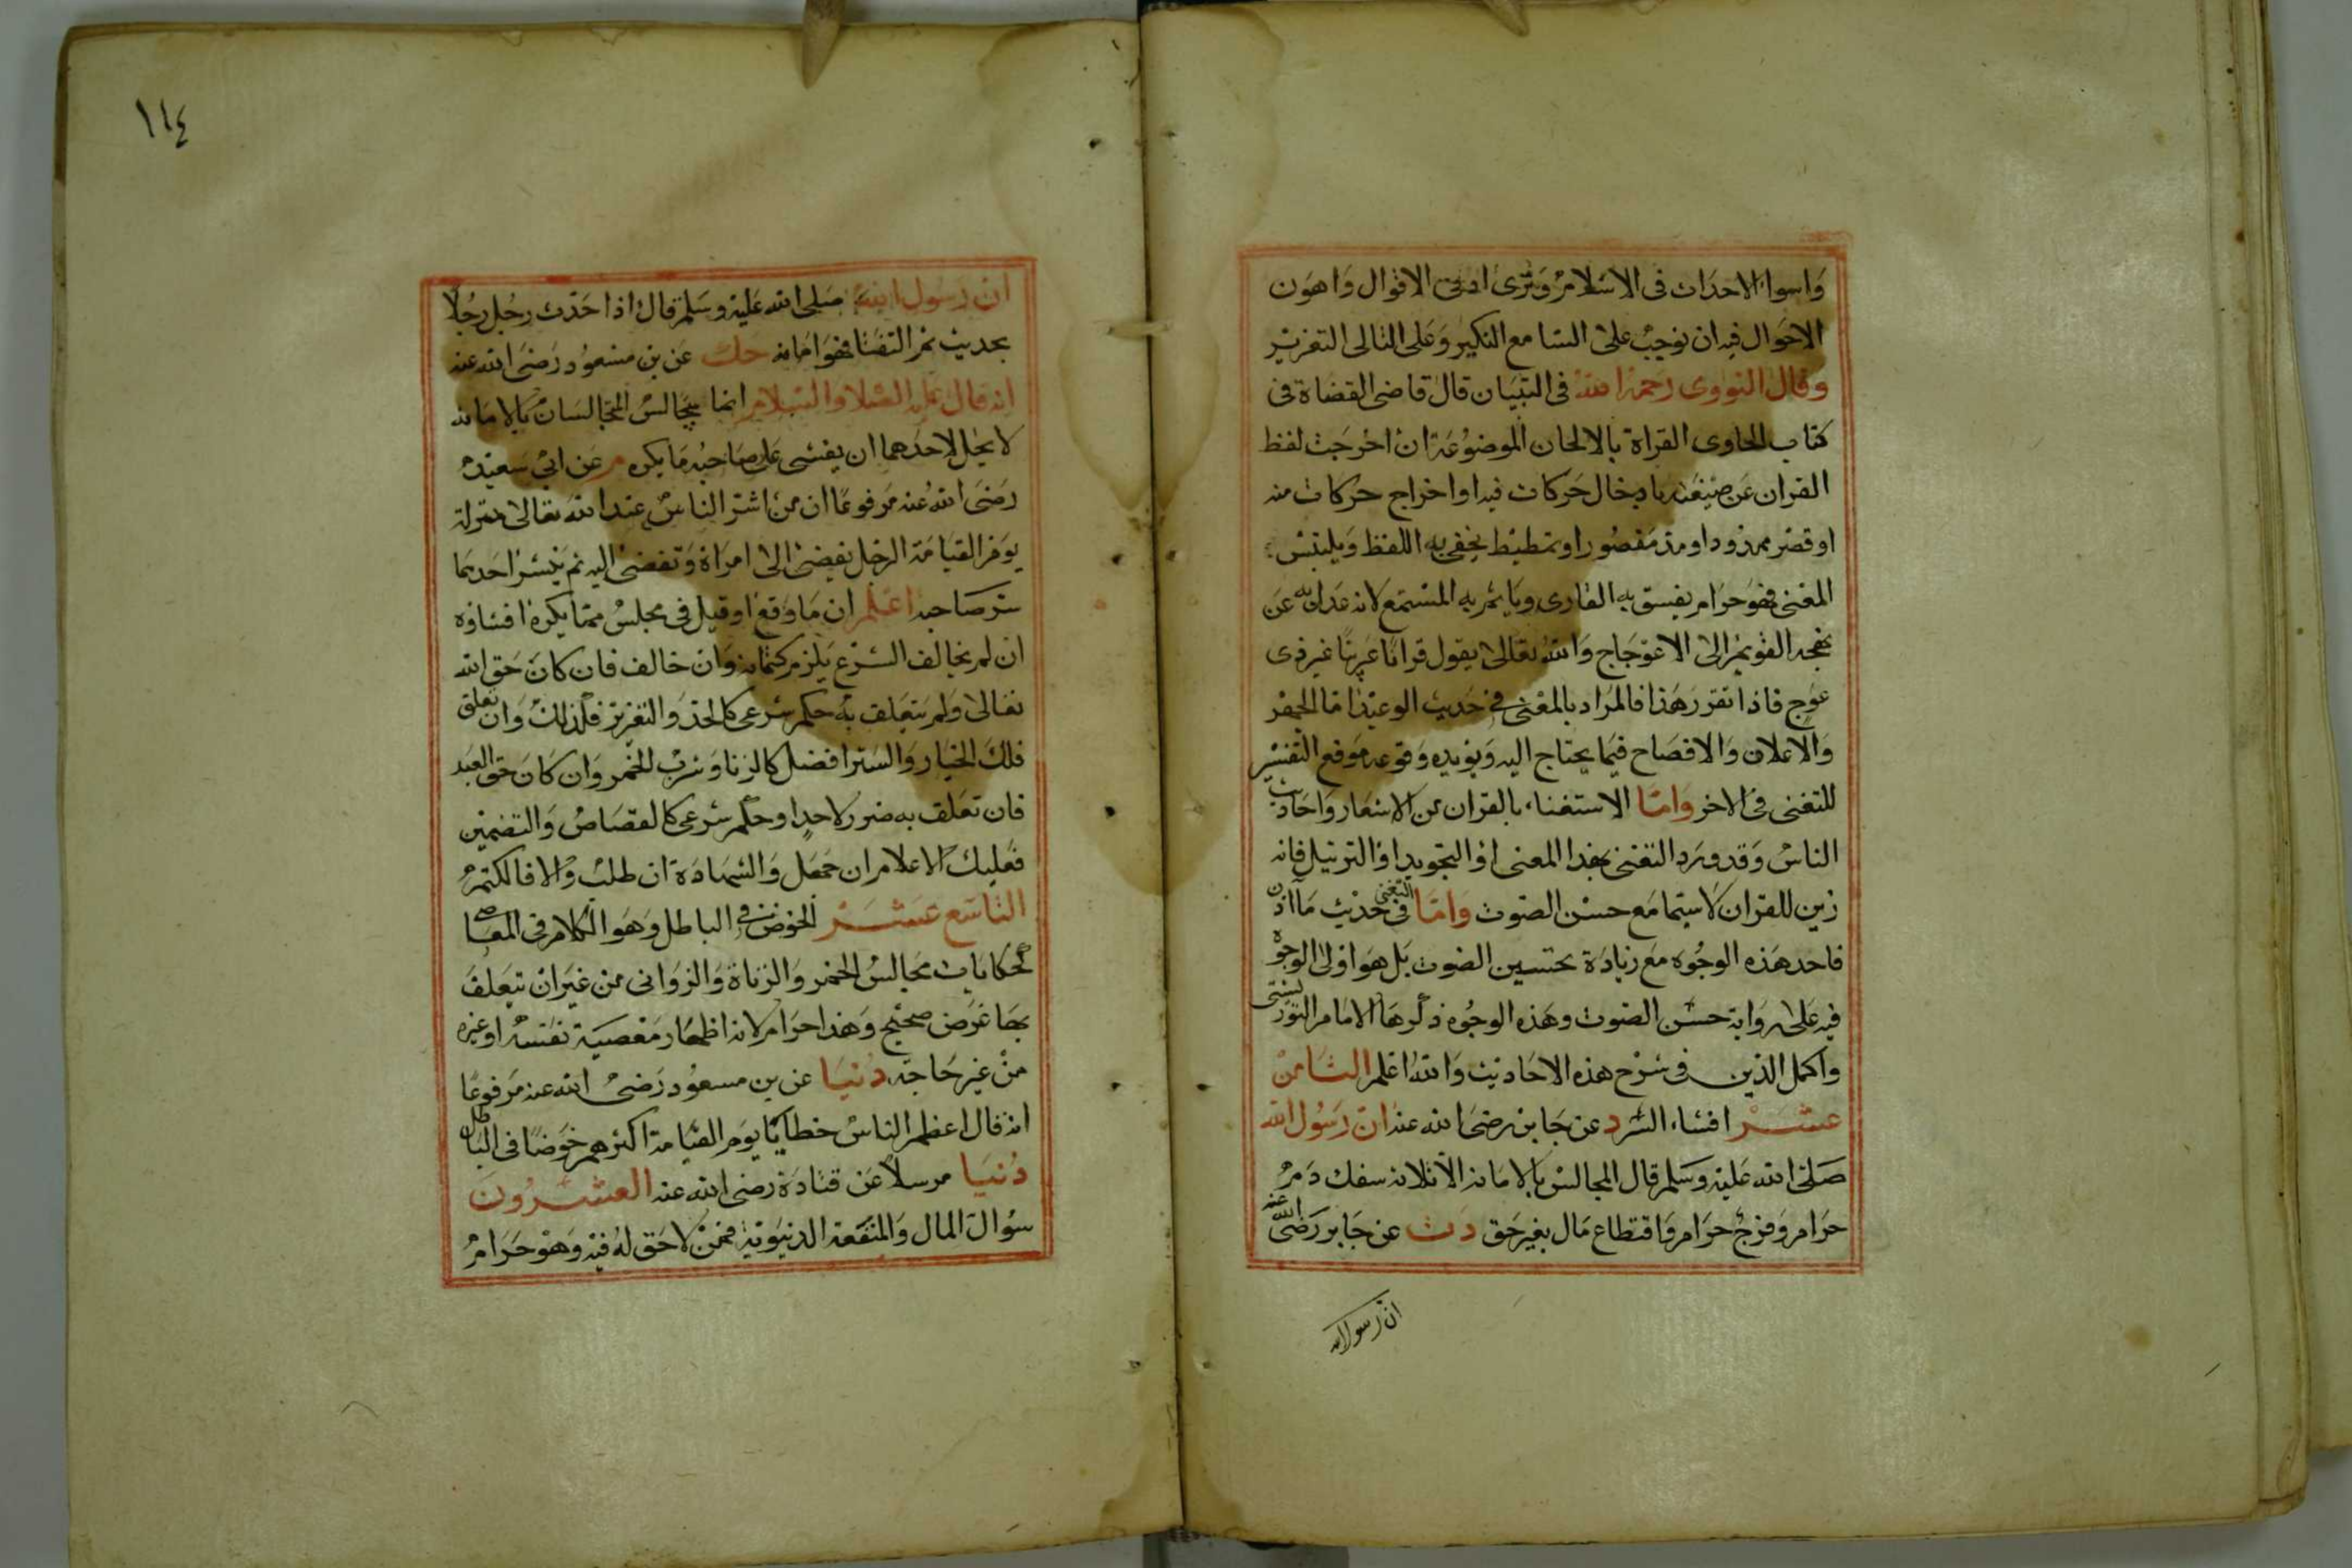 واسوا الاحداث فى الاسلام وترى ادنى الاقوال واهون
الاحوال فيه ان نوجب على السامع النكير وعلى التالى التعزير
وقال النووى رحمه الله فى التبيان قال قاضى القضاة فى
كتاب الحاوى القراة بالالحان الموضوعة ان اخرجت لفظ
القران عن صيغته بادخال حركات فيه او اخراج حركات منه
او قصر ممدود او مد مقصور او تمطيط يخفى به اللفظ ويلتبس
المعنى فهو حرام يفسق به القارى وياثم به المستمع لانه عدل به عن
نهجه القويم الى الاعوجاج والله تعالى يقول قرانا عربيا غير ذى
عوج فاذا تقرر هذا فالمراد بالمعنى فى حديث الوعيد اما الجهر
والاعلان والافصاح فيما يحتاج اليه ويؤيده وقوعه موقع التفسير
للتغنى فى الاخر واما الاستغناء بالقران عن الاشعار واحاديث
الناس وقد ورد التغنى بهذا المعنى او التجويد او الترتيل فانه
زين للقران لاسيما مع حسن الصوت واما التغنى فى حديث ما اذن
فاحد هذه الوجوه مع زيادة تحسين الصوت بل هو اولى الوجوه
فيه على رواية حسن الصوت وهذه الوجوه ذكرها الامام التوربشتى
واكمل الدين فى شرح هذه الاحاديث والله اعلم الثامن
عشر افشاء السر د عن جابر رضى الله عنه ان رسول الله
صلى الله عليه وسلم قال المجالس بالامانة الا ثلاثة سفك دم
حرام وفرج حرام واقتطاع مال بغير حق د ت عن جابر رضى الله عنه
ان رسول الله
١١٤
ان رسول الله صلى الله عليه وسلم قال اذا حدث رجل رجلا
بحديث ثم التفت فهو امانة حك عن بن مسعود رضى الله عنه
انه قال عليه الصلاة والسلام انما يتجالس المتجالسان بالامانة
لا يحل لاحدهما ان يفشى على صاحبه ما يكره م عن ابى سعيد
رضى الله عنه مرفوعا ان من اشر الناس عند الله تعالى منزلة
يوم القيامة الرجل يفضى الى امراة وتفضى اليه ثم ينشر احدهما
سر صاحبه اعلم ان ما وقع او قيل فى مجلس مما يكره افشاؤه
ان لم يخالف الشرع يلزم كتمانه وان خالف فان كان حق الله
تعالى ولم يتعلق به حكم شرعى كالحد والتعزير فكذلك وان تعلق
فلك الخيار والستر افضل كالزنا وشرب الخمر وان كان حق العبد
فان تعلق به ضرر لاحد او حكم شرعى كالقصاص والتضمين
فعليك الاعلام ان جهل والشهادة ان طلب والا فالكتم
التاسع عشر الخوض فى الباطل وهو الكلام فى المعاصى
كحكايات مجالس الخمر والزناة والزوانى من غير ان يتعلق
بها غرض صحيح وهذا حرام لانه اظهار معصية نفسه او غيره
من غير حاجة دنيا عن بن مسعود رضى الله عنه مرفوعا
انه قال اعظم الناس خطايا يوم القيامة اكثرهم خوضا فى الباطل
دنيا مرسلا عن قتادة رضى الله عنه العشرون
سؤال المال والمنفعة الدنيوية فمن لا حق له فيه وهو حرام